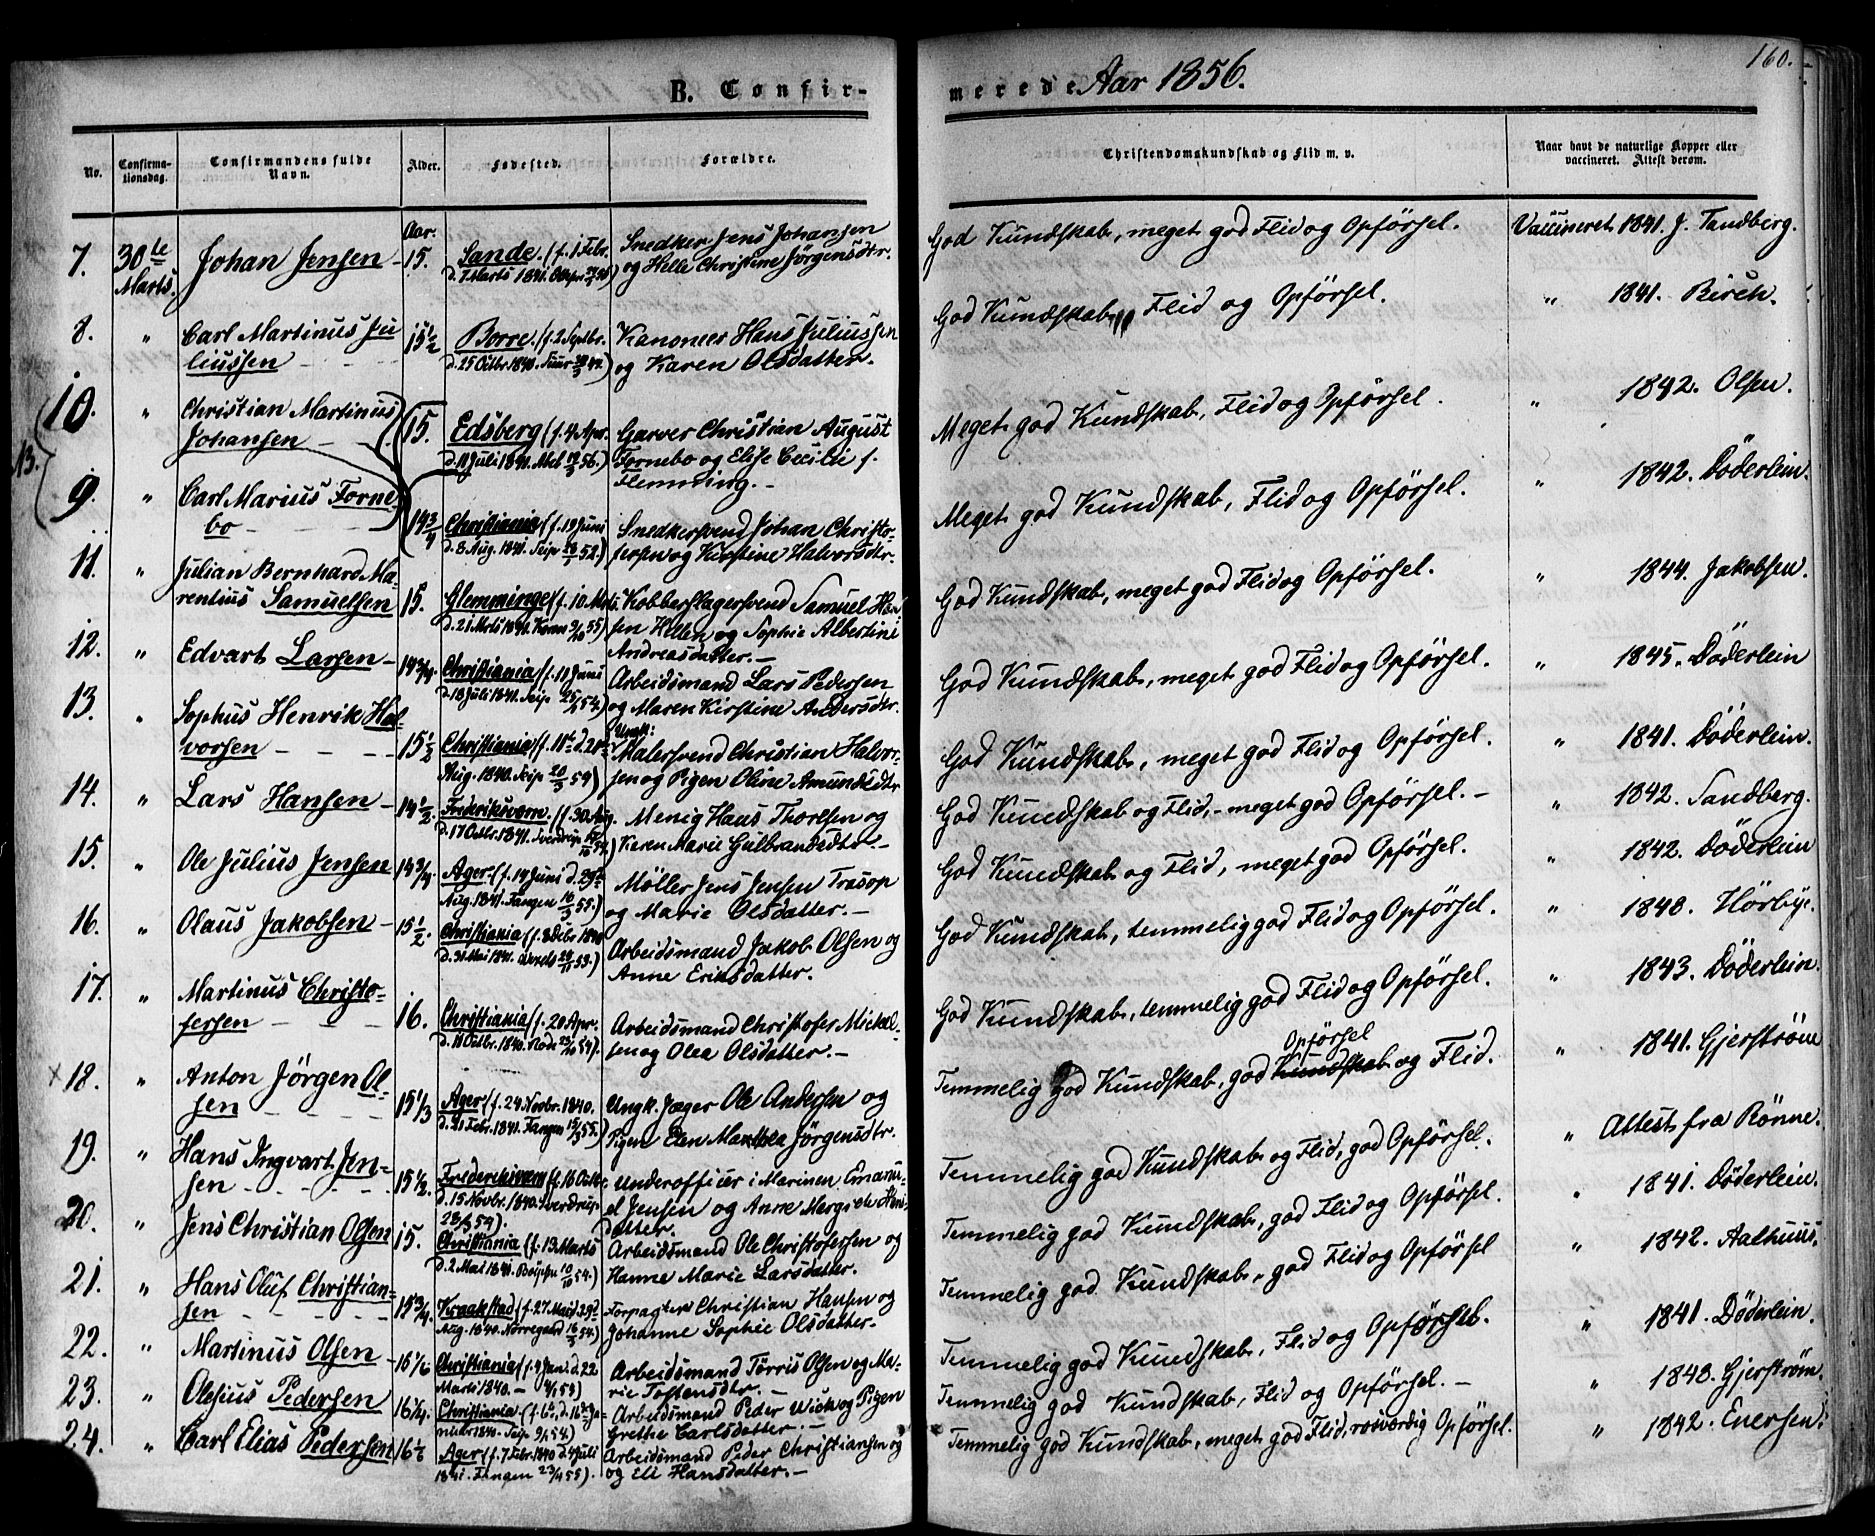 B. Confir-
merede Aar 1856.
160.
No.
Confirma-
tionsdag.
Confirmandens fulde
Navn.
Alder.
Fødested.
Forældre.
Christendomskundskab og Flid m. v.
Naar havt de naturlige Kopper eller
vaccineret. Attest derom.
7.
30te
Marts.
Johan Jensen
Aar.
15.
Sande. (f. 1 Febr.
d. 7 Marts 1841.
Snedker Jens Johansen
og Helle Christine Jörgensdtr.
God Kundskab, meget god Flid og Opförsel.
Vaccineret 1841. J. Tandberg.
8.
"
Carl Martinus Ju
liussen
15 1/2
Borre. (f. 2 Septbr.
d. 25 Octbr. 1840.
Kanoneer Hans Juliussen
og Karen Olsdatter.
God Kundskab, Flid og Opförsel.
" 1841. Birch.
10.
"
Christian Martinus
Johansen
15.
Edsberg (f. 4 Apr.
d. 11 Juli 1841. 56.)
Garver Christian August
Fornebo og Elise Cecilie f.
Flemming.
Meget god Kundskab, Flid og Opförsel.
" 1842. Olsen.
13.
9.
"
Carl Marius Forne
bo
14 3/4
Christiania (f. 19 Juni
d. 8 Aug. 1841. Seip 52.)
Snedkersvend Johan Christo-
fersen og Kirstine Halvorsdtr.
Meget god Kundskab, Flid og Opförsel.
" 1842. Döderlein.
11.
"
Julian Bernhard Ma-
rentius Samuelsen
15.
Glemminge (f. 10. Mrts.
d. 21 Mrts 1841. 9/10 55)
Kobberslagersvend Samuel Han
sen Hellen og Sophie Albertine
Andreasdatter.
God Kundskab, meget god Flid og Opförsel.
" 1844. Jakobsen.
12.
"
Edvart Larsen
14 3/4
Christiania (f. 11 Juni
d. 18 Juli 1841. Seip 54.)
Arbeidsmand Lars Pedersen
og Maren Kirstine Andersdtr.
God Kundskab, meget god Flid og Opförsel.
" 1845. Döderlein
13.
"
Sophus Henrik Hal-
vorsen
15 1/2
Christiania (f. 11te d. 21
Aug. 1840. Seip 20/3 59)
Ungk:
Malersvend Christian Halvor-
sen og Pigen Oline Amundsdtr
God Kundskab, meget god Flid og Opförsel.
" 1841. Döderlein.
14.
"
Lars Hansen
14 1/2
Frederiksvern. (f. 30 Aug.
d. 17 Octbr. 1841. Sverdrup 54.)
Menig Hans Thoresen og
Karen Marie Gulbrandsdtr.
God Kundskab og Flid, - meget god Opförsel. -
" 1842. Sandberg.
15.
"
Ole Julius Jensen
14 3/4
Ager (f. 14 Juni d. 29
Aug. 1841. Tangen 16/3 55.)
Møller Jens Jensen Trasop
og Marie Olsdatter.
God Kundskab og Flid, meget god Opförsel.
" 1842. Döderlein
16.
"
Olaus Jakobsen
15 1/2.
Christiania (f. 8 1840
d. 31 Mai 1841. 53.)
Arbeidsmand Jakob Olsen og
Anne Eriksdatter.
God Kundskab, temmelig god Flid og Opförsel.
" 1840. Hörbye.
17.
"
Martinus Christo-
fersen
16.
Christiania (f. 20 Apr.
d. 11 Octbr. 1840. Rode 54).
Arbeidsmand Christofer Mickel-
sen og Olea Olsdatter.
God Kundskab, temmelig god Flid og Opförsel.
" 1843. Döderlein.
x 18.
"
Anton Jörgen Ol-
sen
15 1/3
Ager (f. 24. Novbr. 1840.
d. 21 Febr. 1841. Tangen 55.)
Ungk. Jæger Ole Andersen og
Pigen Elen Jörgensdtr.
Opförsel
Temmelig god Kundskab, god Kundskab og Flid.
" 1841. Gjerström
19.
"
Hans Ingvart Jen-
sen
15 1/2.
Frederiksvern (f. 16 Octbr.
d. 15 Novbr. 1840. Sverdrup
54).
Underofficer i Marinen Emanu-
el Jensen og Anne Hen
datter
Temmelig god Kundskab og Flid, god Opförsel.
" Attest fra Rönne.
20.
"
Jens Christian Olsen
15.
Christiania (f. 13. Marts
d. 2 Mai 1841. 10/10 54.)
Arbeidsmand Ole Christofersen og
Hanne Marie Larsdatter.
Temmelig god Kundskab, god Flid og Opförsel.
" 1841. Döderlein.
21.
"
Hans Oluf Christian-
sen
15 3/4
Kraakstad (f. 27. Mai d. 29d
Aug. 1840. Nörregaard 54.)
Forpagter Christian Hansen og
Johanne Sophie Olsdatter.
Temmelig god Kundskab, god Flid og Opförsel
" 1842. Aalhuus.
22.
"
Martinus Olsen
16 1/6
Christiania (f. 4 Jan. d. 22
Marts 1840. - 53)
Arbeidsmand Törris Olsen og Ma-
rie Tostensdtr.
Temmelig god Kundskab, Flid og Opförsel.
" 1841. Döderlein.
23.
"
Olesius Pedersen
16 1/4.
Christiania. (f. 6te, d. 16
1840. Seip 9/1 54.)
Arbeidsmand Peder Wick og Pigen
Grethe Carlsdatter.
Temmelig god Kundskab, Flid og Opförsel. -
" 1843. Gjerström.
24.
"
Carl Elias Pedersen
16 1/2
Ager (f. 7 Febr. 1840 d. 4 Juli
1841. Tangen 23/1 55).
Arbeidsmand Peder Christiansen og
og Eli Hansdatter. -
Temmelig god Kundskab, meget god Flid, rosværdig Opförsel.
" 1842. Evensen.